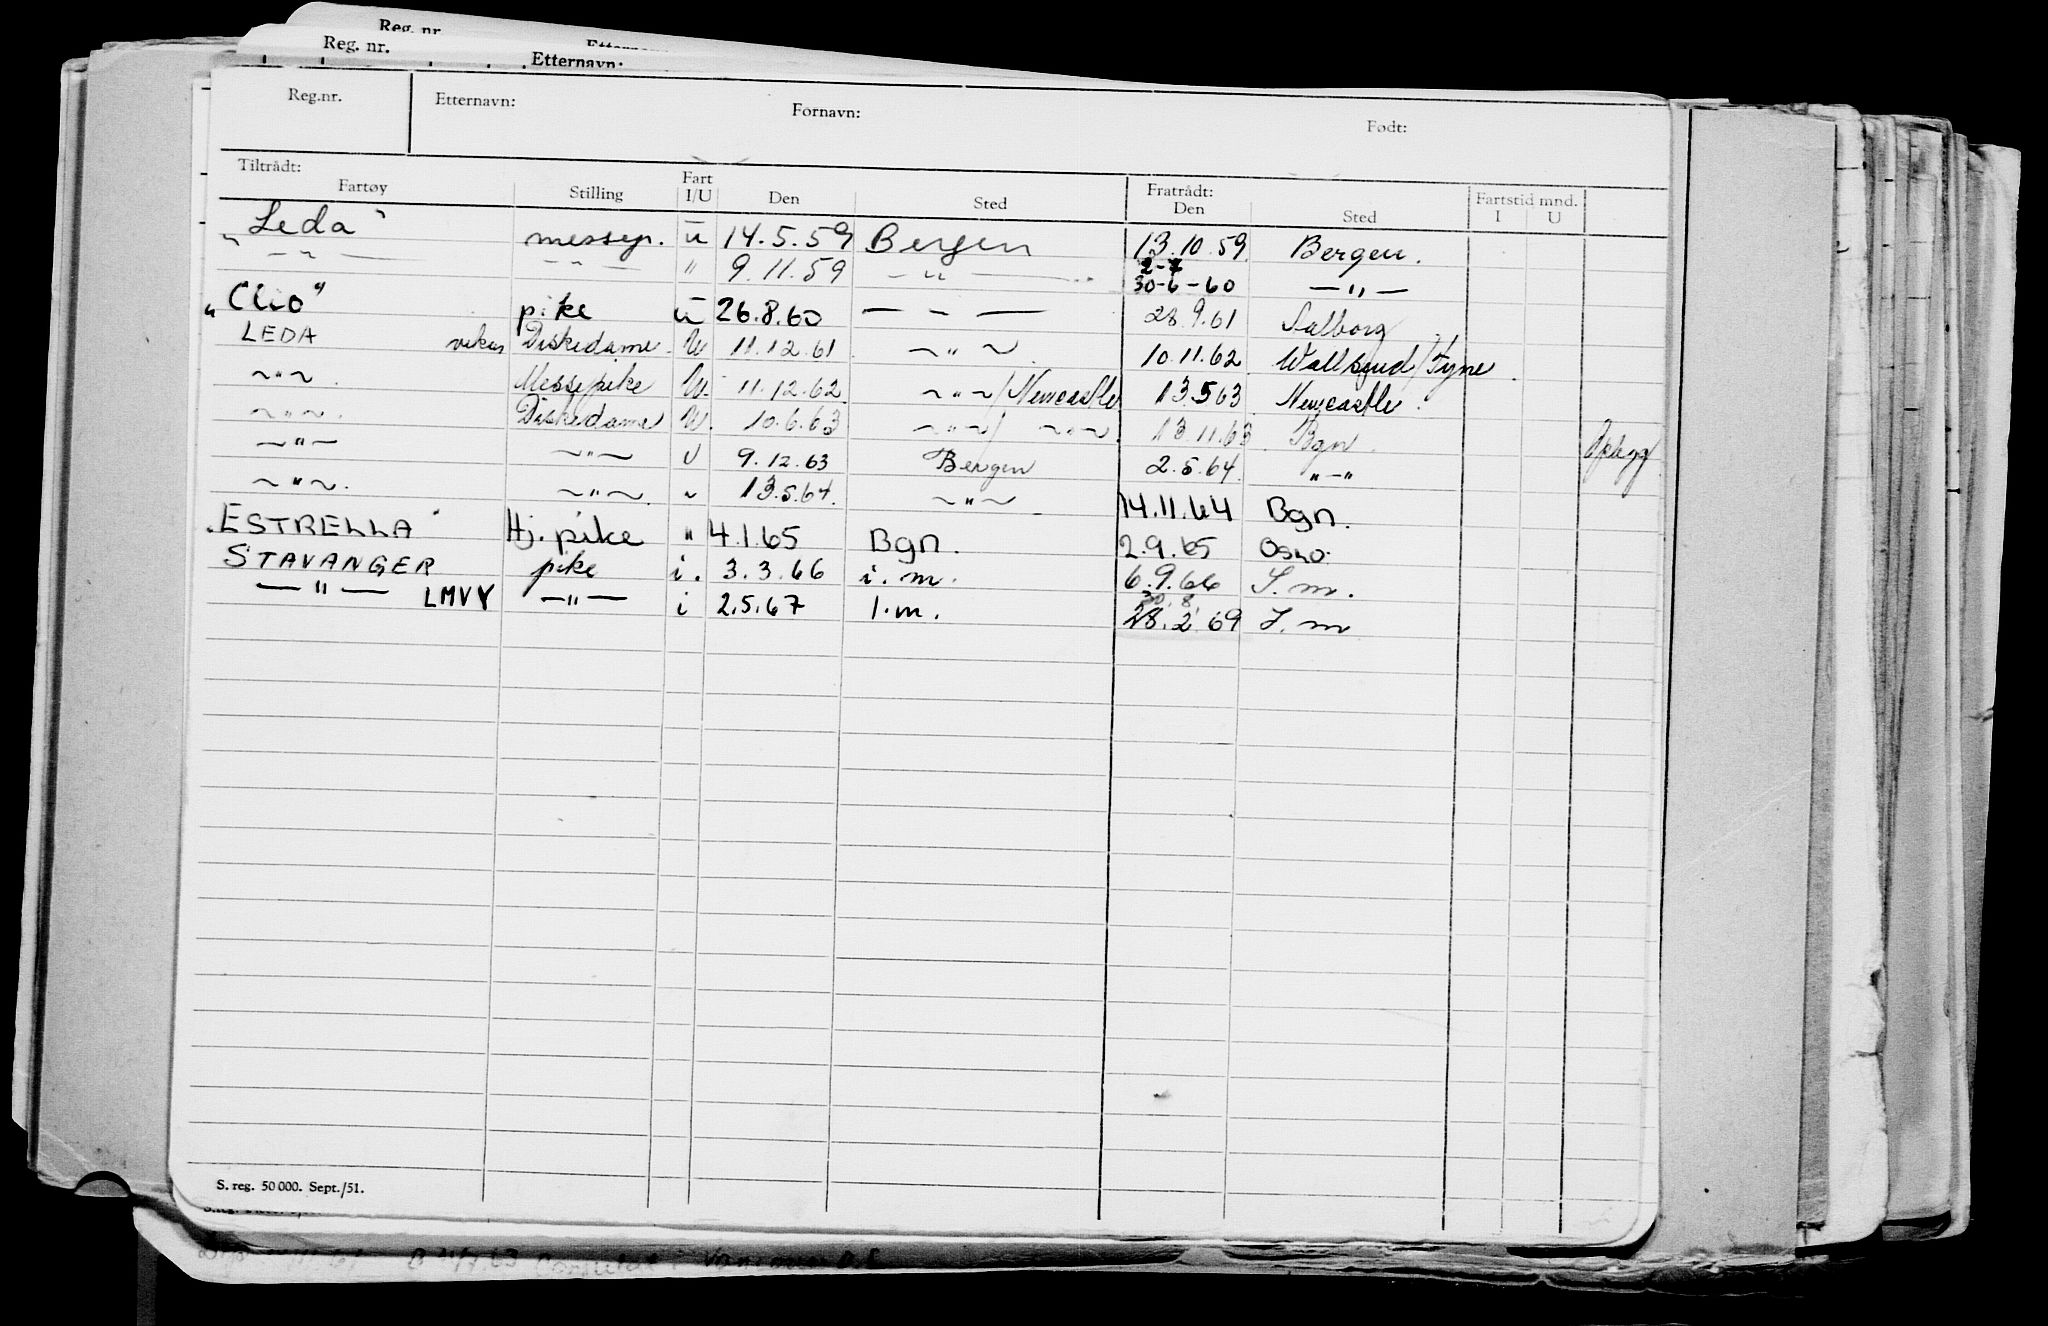 Reg. nr.
Reg. nr.
Etternavn:
Reg.nr. Etternavn: Fornavn: Født:
Tiltrådt: Fratrådt: Fartstid mnd.
Fartøy Stilling Fart I/U Den Sted Den Sted I U
"Leda" messep. u 14.5.59 Bergen 13.10.59 Bergen.
- " - - " - " 9.11.59 - " - 2-7 30-6-60 - " -
"Clio" pike u 26.8.60 - - - 28.9.61 Aalborg
LEDA vikar Diskedame U 11.12.61 ~ " ~ 10.11.62 Wallsend/Tyne
~ " ~ Messepike U. 11.12.62 ~ " ~/Newcastle 13.5.63 Newcastle.
~ " ~. Diskedame U. 10.6.63 ~ " ~/ ~ " ~ 13.11.63 Bgn.
~ " ~ ~ " ~ U 9.12.63 Bergen 2.5.64. " - "
~ " ~. ~ " ~. " 13.5.64. ~ " ~ 14.11.64 Bgn.
"ESTRELLA" Hj. pike " 4.1.65 Bgn. 2.9.65 Oslo.
STAVANGER pike i. 3.3.66 i. m. 6.9.66 I. m.
- " - LMVY - " - i 2.5.67 I.m. 30.8. 28.2.69 I. m
S. reg. 50 000. Sept./51.